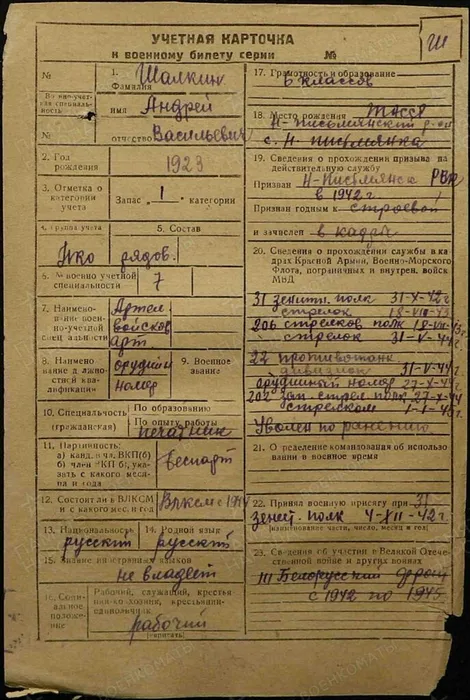 Ш
УЧЕТНАЯ КАРТОЧКА
к военному билету серии №
№
1. Шалкин
Фамилия
Военно-учетная специальность
имя Андрей
№
отчество Васильевич
2. Год рождения 1923
3. Отметка о категории учета
Запас „1“ категории
4. Группа учета
5. Состав
рядов.
6. № военно учетной специальности 7
7. Наименование военно-учетной специальности
Артел
войсков
арт
8. Наименование должностной квалификации
орудийн
номер
9. Военное звание
10. Специальность (гражданская)
По образованию
По опыту работы
печатник
11. Партийность:
а) канд. в чл. ВКП(б)
б) член ВКП(б), указать с какого месяца и года
беспарт
12. Состоял ли в ВЛКСМ и с какого мес. и год
Влксм с 1944
13. Национальность
русский
14. Родной язык
русский
15. Знание иностранных языков
не владеет
16. Социальное положение
Рабочий, служащий, крестьянин-единоличник
рабочий
(вписать)
17. Грамотность и образование
6 классов
18. Место рождения ТАССР
Н-Письмянский р-он
с. Н-письмянка
19. Сведения о прохождении призыва на действительную службу
Призван Н-Письмянск РВК
в 1942 г.
Признан годным к строевой
и зачислен в кадры
20. Сведения о прохождении службы в кадрах Красной Армии, Военно-Морского Флота, пограничных и внутрен. войск МВД
31 зенитн. полк 31-X-42 г.
стрелок 18-VIII-43
206 стрелков полк 18-VIII-43 г.
стрелок 31-V-44 г.
22 противотанк.
дивизион 31-V-44
орудийный номер 27-X-44
202 зап. стрел полк 27-X-44
стрелком
Уволен по ранению
21. О
ределение командования об использовании в военное время
22. Принял военную присягу при 31
зенит. полк 4-XII-42 г.
(наименование части, число, месяц и год)
23. Сведения об участии в Великой Отечественной войне и других войнах
III Белорусский фронт
с 1942 по 1945